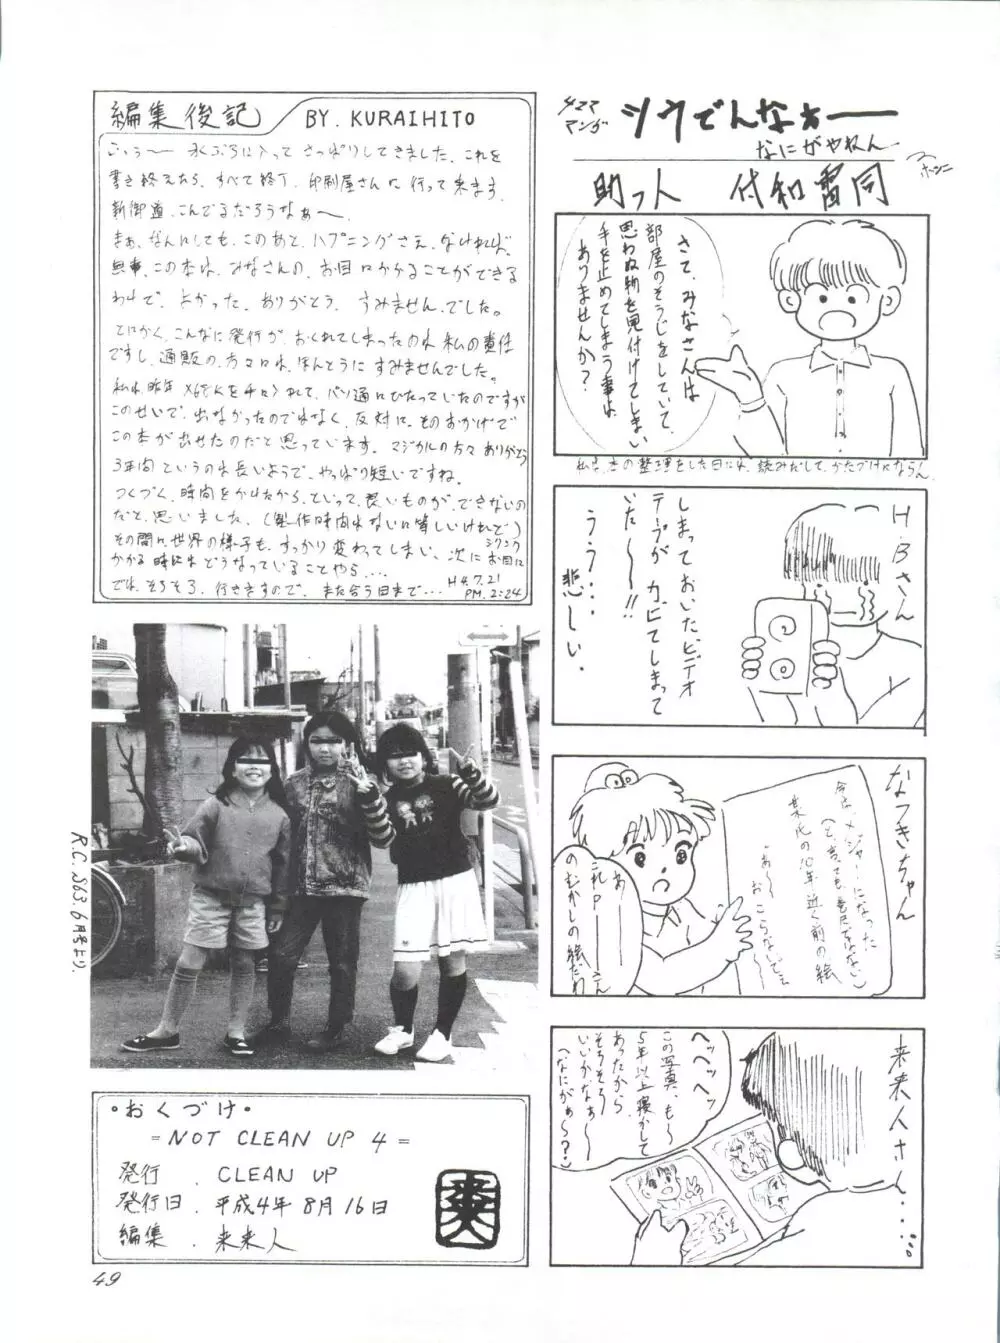 編集後記 BY. KURAIHITO
ごぅぅ〜 水ぶろに入って さっぱりしてきました. これを
書き終えたら. すべて終了. 印刷屋さんに 行って来ます.
新御道. こんでるだろうなぁ〜.
まぁ、なんにしても. このあと. ハプニングさえ. なければ.
無事. この本は. みなさんの. お目にかかることができる
わけで. よかった. ありがとう. すみません. でした。
とにかく. こんなに発行が. おくれてしまったのは 私の責任
ですし. 通販の. 方々には. ほんとうに すみませんでした。
私は. 昨年 X68Kを 手に入れて. パソ通にひたっていたのですが
このせいで. 出なかったのではなく. 反対に. そのおかげで
この本が出せたのだと思っています. マジカルの方々ありがとう
3年間というのは長いようで. やっぱり短いですね.
つくづく. 時間をかけたから. といって. 良いものが. できないの
だと. 思いました. (製作時間はないに等しいけれど)
その間に. 世界の様子も. すっかり変わってしまい. 次にお目に
かかる時には どうなっていることやら...
では. そろそろ. 行ききますので. また会う日まで... H4.7.21
PM. 2:24
R.C. S63. 6月号より.
・おくづけ・
= NOT CLEAN UP 4 =
発行 . CLEAN UP
発行日 . 平成4年 8月16日
編集 . 来来人
49
4コマ
マンガ
ツウでんなぁー
なにがやねん
助っ人 付和雷同
さて、みなさんは
部屋のそうじをしていて、
思わぬ物を見付けてしまい
手を止めてしまう事は
ありませんか?
私は、本の整理をした日には、読みだして、かたづけにならん.
H.Bさん
しまっておいた、ビデオ
テープが カビてしまって
いた〜〜!!
うう...
悲しい.
なつきちゃん
今は、メジャーになった
(と、言っても巻尺ではない)
某氏の10年近く前の絵
あ〜 おこらないでぇぇ
あー
これPーさん
のむかしの絵だわ
来来人さん...
ヘッヘッヘッ
この写真、も〜
5年以上寝かして
あったから
そろそろ
いいかなぁ〜
(なにがぁ〜?)